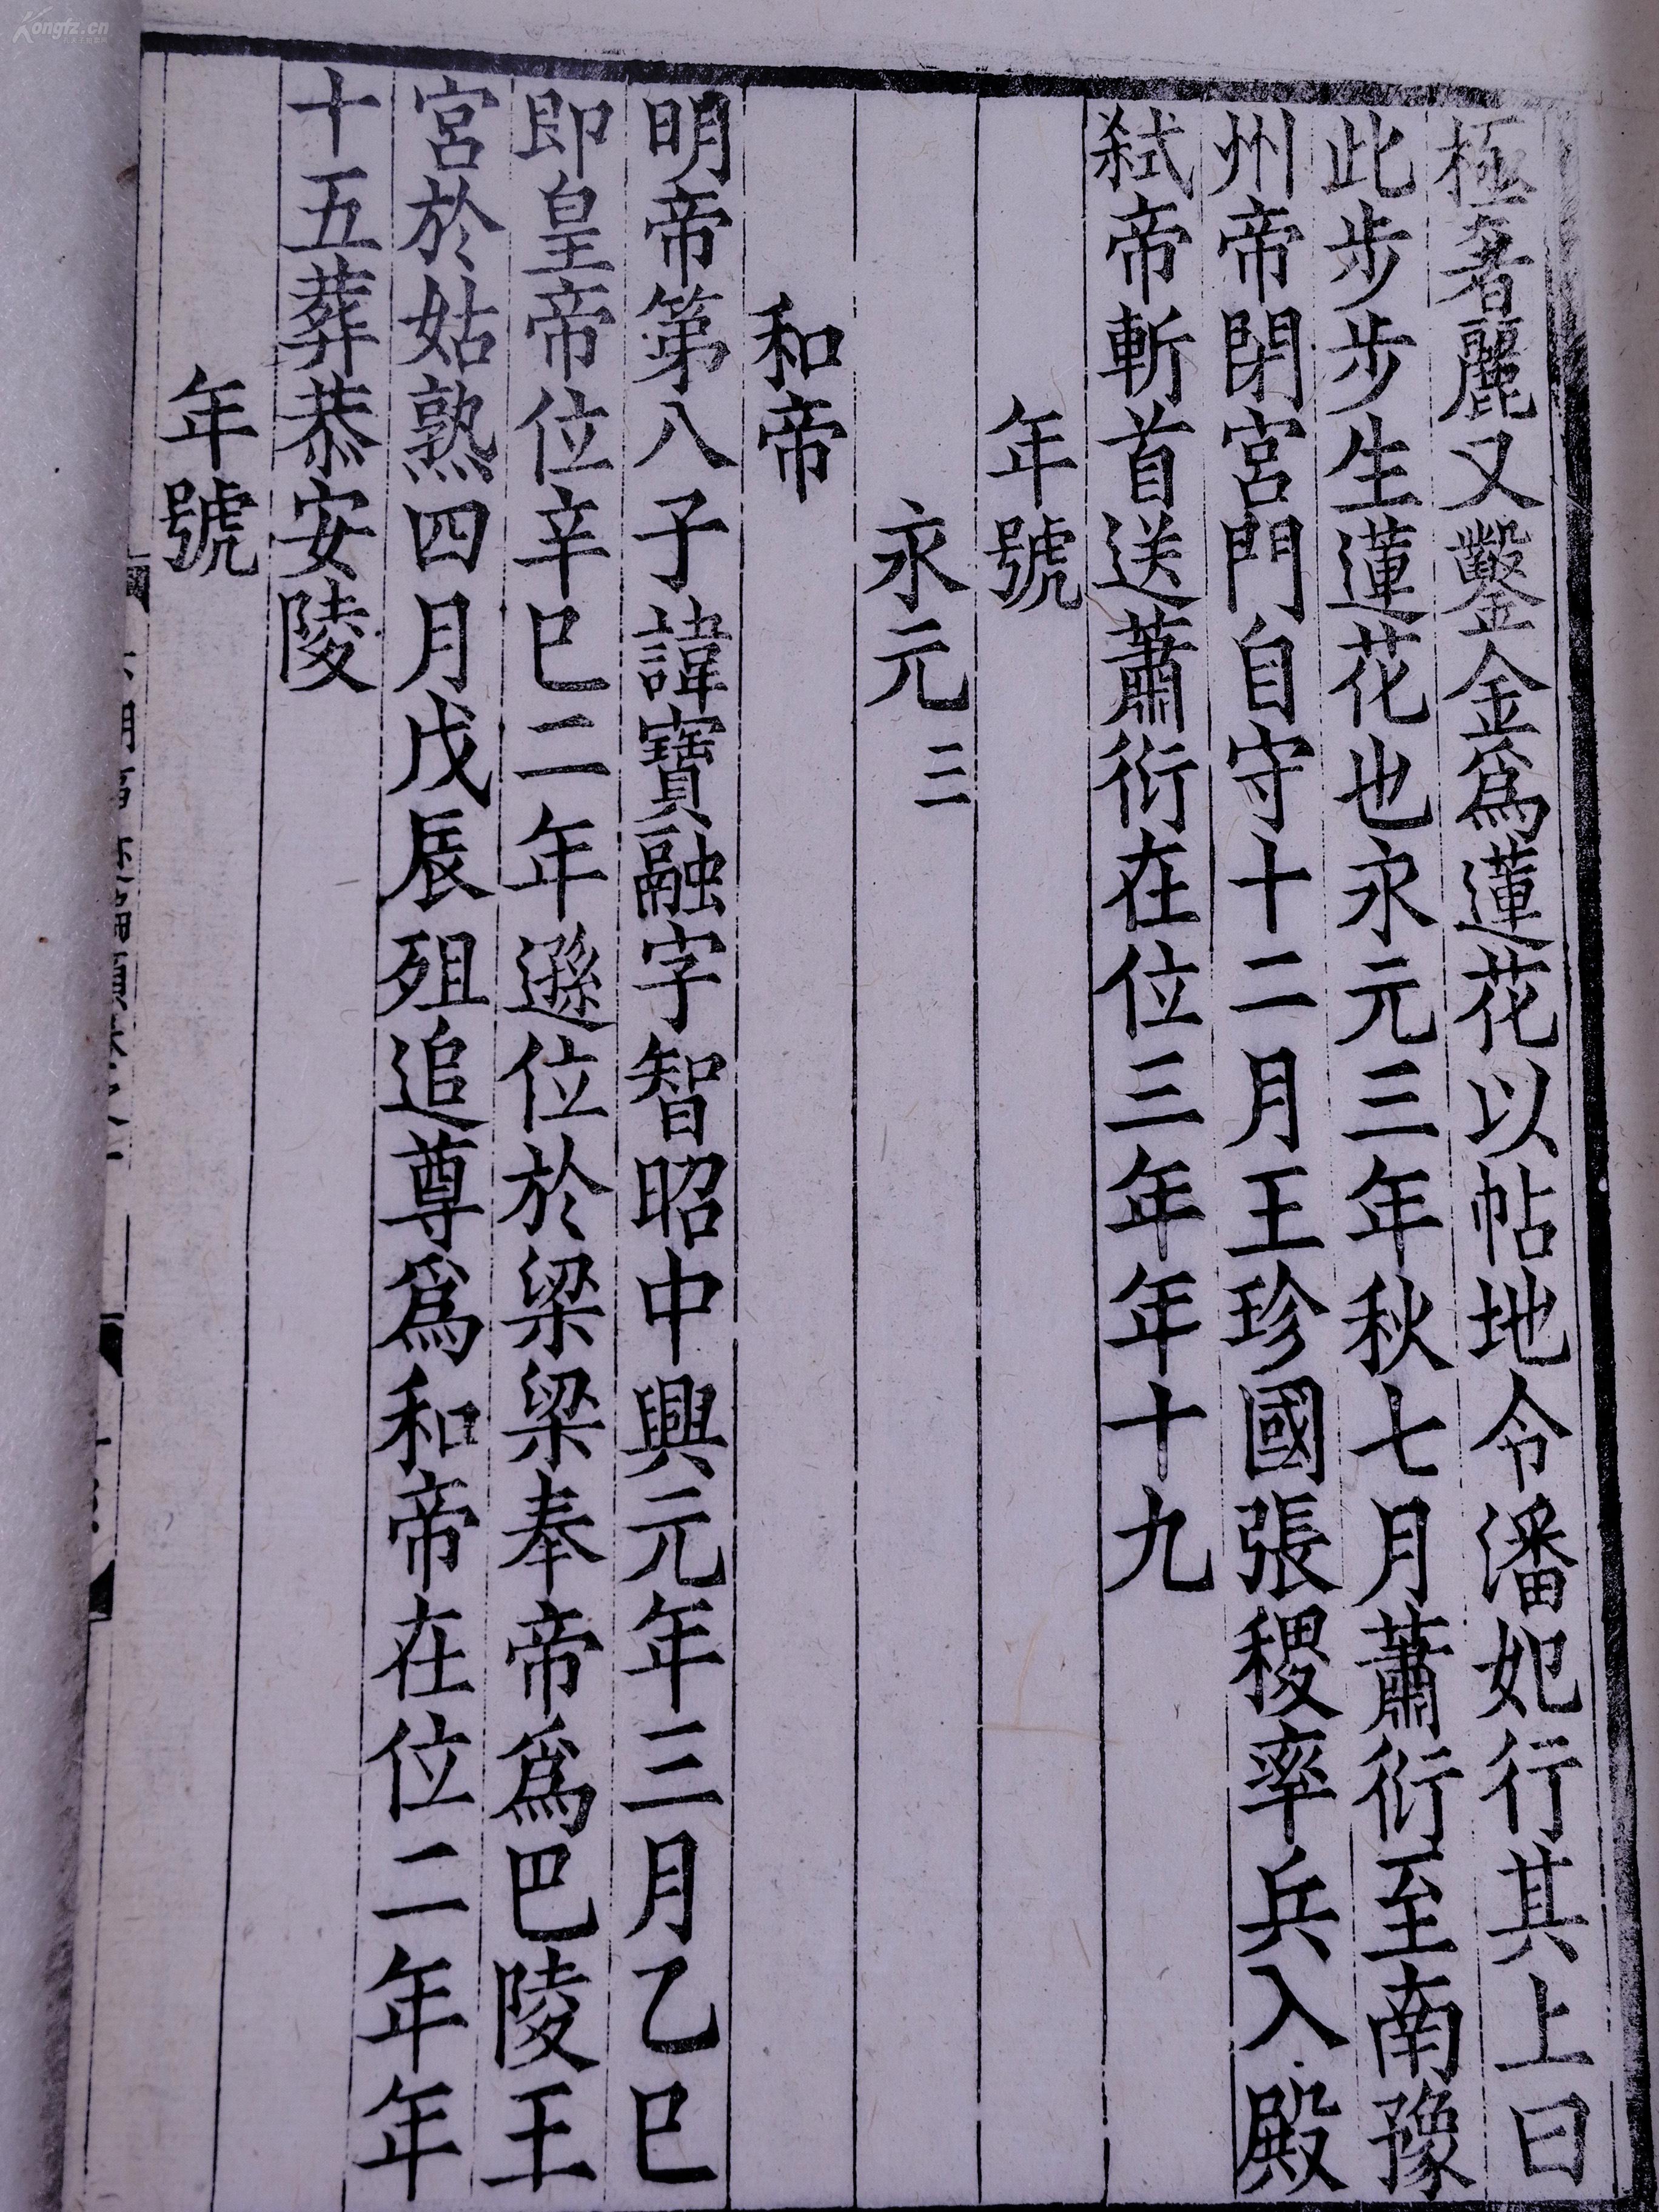 極奢麗又鑿金爲蓮花以帖地令潘妃行其上曰
此步步生蓮花也永元三年秋七月蕭衍至南豫
州帝閉宮門自守十二月王珍國張稷率兵入殿
弑帝斬首送蕭衍在位三年年十九
年號
永元三
和帝
明帝第八子諱寶融字智昭中興元年三月乙巳
即皇帝位辛巳二年遜位於梁梁奉帝爲巴陵王
宮於姑熟四月戊辰殂追尊爲和帝在位二年年
十五葬恭安陵
年號
Kongfz.cn